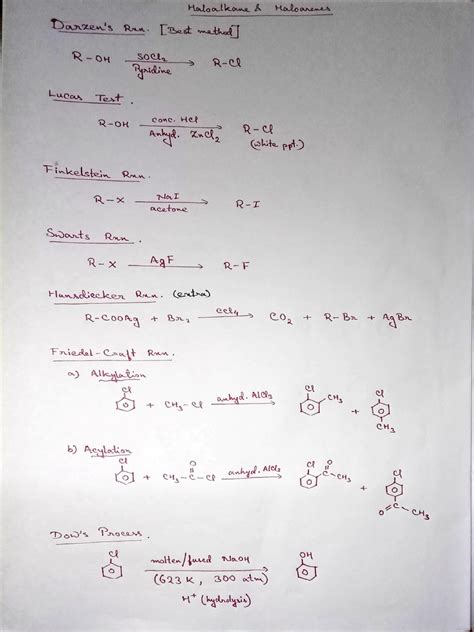 Haloalkane & Haloarenes
Darzen's Rxn. [Best method]
R-OH SOCl₂ Pyridine → R-Cl
Lucas Test.
R-OH conc. HCl Anhyd. ZnCl₂ → R-Cl
(white ppt.)
Finkelstein Rxn.
R-X NaI acetone → R-I
Swarts Rxn.
R-X AgF → R-F
Hunsdiecker Rxn. (extra)
R-COOAg + Br₂ CCl₄ → CO₂ + R-Br + AgBr
Friedel-Craft Rxn.
a) Alkylation
Cl + CH₃-Cl anhyd. AlCl₃ → Cl CH₃ + Cl CH₃
b) Acylation
Cl + CH₃-C-Cl O anhyd. AlCl₃ → Cl O C-CH₃ + Cl O C-CH₃
Dow's Process.
Cl molten/fused NaOH → OH
(623 K, 300 atm)
H⁺ (hydrolysis)